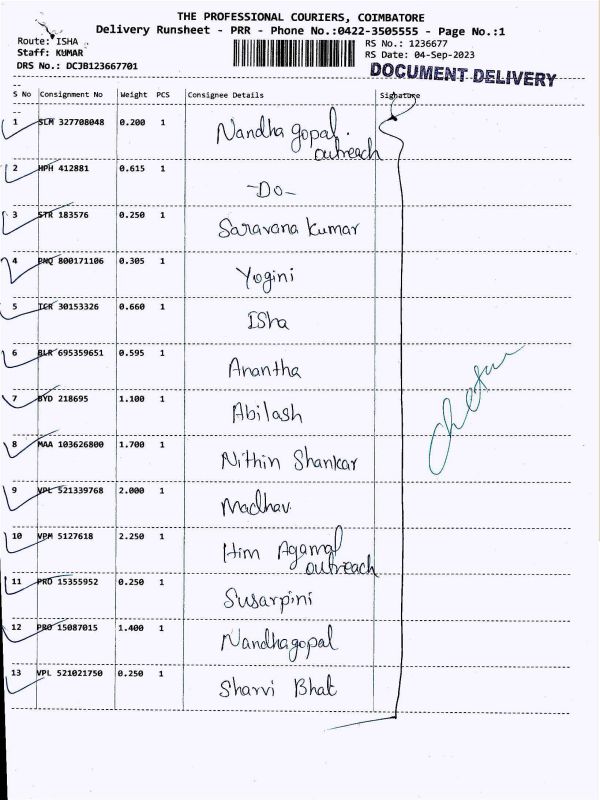 THE PROFESSIONAL COURIERS, COIMBATORE
Delivery Runsheet - PRR - Phone No.:0422-3505555 - Page No.:1
Route: ISHA
Staff: KUMAR
DRS No.: DCJB123667701
RS No.: 1236677
RS Date: 04-Sep-2023
DOCUMENT DELIVERY
S No Consignment No Weight PCS Consignee Details Signature
1 SLM 327708048 0.200 1 Nandha gopal.
outreach
2 HPH 412881 0.615 1 -Do-
3 STR 183576 0.250 1 Saravana Kumar
4 PNQ 800171106 0.305 1 Yogini
5 TCR 30153326 0.660 1 ISha
6 BLR 695359651 0.595 1 Anantha
7 BYD 218695 1.100 1 Abilash
8 MAA 103626800 1.700 1 Nithin Shankar
9 VPL 521339768 2.000 1 Madhav.
10 VPM 5127618 2.250 1 Him Agarwal
outreach
11 PRO 15355952 0.250 1 Susarpini
12 PRO 15087015 1.400 1 Nandhagopal
13 VPL 521021750 0.250 1 Sharvi Bhat